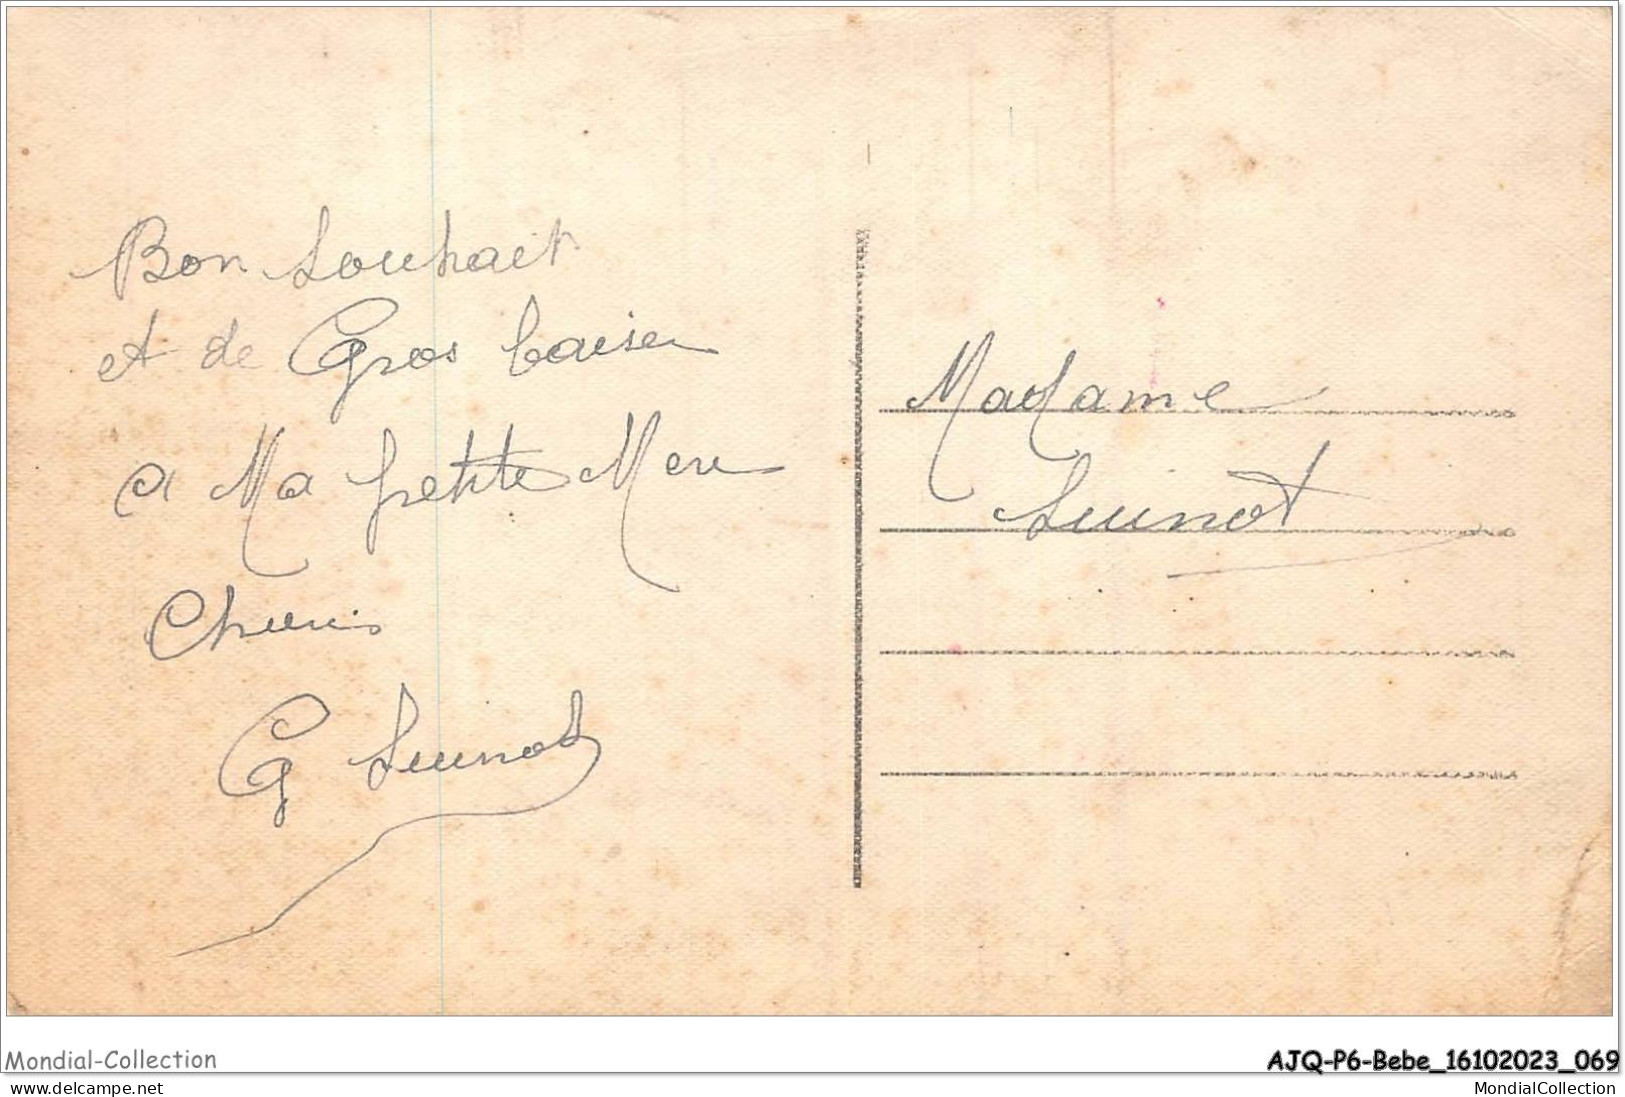 Bon Souhait
et de Gros baiser
a Ma petite Mere
G Suinot
Madame
Suinot
Mondial-Collection
AJQ-P6-Bebe_16102023_069
www.delcampe.net
MondialCollection